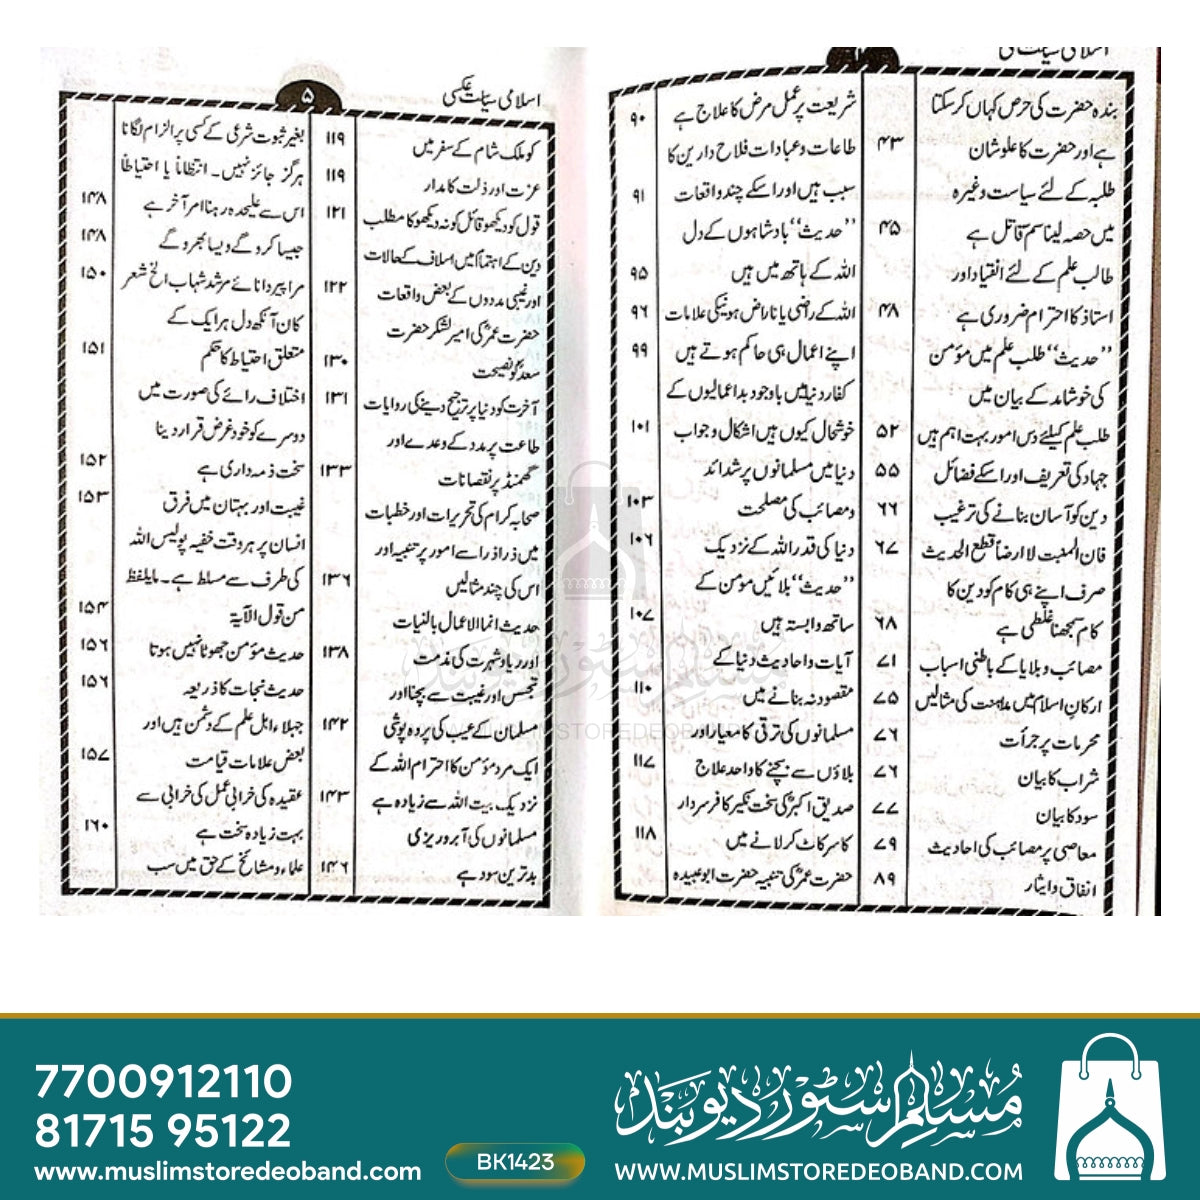 بندہ حضرت کی حرص کہاں کر سکتا
ہے اور حضرت کا علوشان ۴۳
طلبہ کے لئے سیاست وغیرہ
میں حصہ لینا سم قاتل ہے ۴۵
طالب علم کے لئے انقیاد اور
استاذ کا احترام ضروری ہے ۴۸
’’حدیث‘‘ طلب علم میں مؤمن
کی خوشامد کے بیان میں
طلب علم کیلئے دس امور بہت اہم ہیں ۵۲
جہاد کی تعریف اور اسکے فضائل ۵۵
دین کو آسان بنانے کی ترغیب ۶۶
فان المنبت لا ارضاً قطع الحدیث ۶۷
صرف اپنے ہی کام کو دین کا
کام سمجھنا غلطی ہے ۶۸
مصائب و بلایا کے باطنی اسباب ۷۱
ارکان اسلام میں مداہنت کی مثالیں ۷۵
محرمات پر جرأت ۷۶
شراب کا بیان ۷۶
سود کا بیان ۷۷
معاصی پر مصائب کی احادیث ۷۹
انفاق و ایثار ۸۹
شریعت پر عمل مرض کا علاج ہے ۹۰
طاعات و عبادات فلاح دارین کا
سبب ہیں اور اسکے چند واقعات ۹۱
’’حدیث‘‘ بادشاہوں کے دل
اللہ کے ہاتھ میں ہیں ۹۵
اللہ کے راضی یا ناراض ہونیکی علامات ۹۶
اپنے اعمال ہی حاکم ہوتے ہیں ۹۹
کفار دنیا میں باوجود بداعمالیوں کے
خوشحال کیوں ہیں اشکال و جواب ۱۰۱
دنیا میں مسلمانوں پر شدائد
و مصائب کی مصلحت ۱۰۳
دنیا کی قدر اللہ کے نزدیک ۱۰۶
’’حدیث‘‘ بلائیں مؤمن کے
ساتھ وابستہ ہیں ۱۰۷
آیات و احادیث دنیا کے
مقصود نہ بنانے میں ۱۱۰
مسلمانوں کی ترقی کا معیار اور
بلاؤں سے بچنے کا واحد علاج ۱۱۷
صدیق اکبرؓ کی سخت نکیر کافر سردار
کا سر کاٹ کر لانے میں ۱۱۸
حضرت عمرؓ کی تنبیہ حضرت ابو عبیدہ
اسلامی سیاست عکسی ۵
کو ملک شام کے سفر میں ۱۱۹
عزت اور ذلت کا مدار ۱۱۹
قول کو دیکھو قائل کو نہ دیکھو کا مطلب ۱۲۱
دین کے اہتمام میں اسلاف کے حالات
اور غیبی مددوں کے بعض واقعات ۱۲۲
حضرت عمرؓ کی امیر لشکر حضرت
سعدؓ کو نصیحت ۱۳۰
آخرت کو دنیا پر ترجیح دینے کی روایات ۱۳۱
طاعت پر مدد کے وعدے اور
گھمنڈ پر نقصانات ۱۳۳
صحابہ کرام کی تحریرات اور خطبات
میں ذرا ذرا سے امور پر تنبیہ اور
اس کی چند مثالیں ۱۳۶
حدیث انما الاعمال بالنیات
اور ریاء و شہرت کی مذمت ۱۳۸
تجسس اور غیبت سے بچنا اور
مسلمان کے عیب کی پردہ پوشی ۱۴۲
ایک مرد مؤمن کا احترام اللہ کے
نزدیک بیت اللہ سے زیادہ ہے ۱۴۳
مسلمانوں کی آبروریزی
بدترین سود ہے ۱۴۶
بغیر ثبوت شرعی کے کسی پر الزام لگانا
ہرگز جائز نہیں۔ انتظاناً یا احتیاطاً
اس سے علیحدہ رہنا امر آخر ہے ۱۴۸
جیسا کرو گے ویسا بھرو گے ۱۴۸
مرا پیر دانائے مرشد شہاب الخ شعر ۱۵۰
کان آنکھ دل ہر ایک کے
متعلق احتیاط کا حکم ۱۵۱
اختلاف رائے کی صورت میں
دوسرے کو خود غرض قرار دینا
سخت ذمہ داری ہے ۱۵۲
غیبت اور بہتان میں فرق ۱۵۳
انسان پر ہر وقت خفیہ پولیس اللہ
کی طرف سے مسلط ہے۔ مایلفظ
من قول الآیۃ ۱۵۴
حدیث مؤمن جھوٹا نہیں ہوتا ۱۵۶
حدیث نجات کا ذریعہ ۱۵۶
جہلاء اہل علم کے دشمن ہیں اور
بعض علامات قیامت ۱۵۷
عقیدہ کی خرابی عمل کی خرابی سے
بہت زیادہ سخت ہے ۱۶۰
علماء و مشائخ کے حق میں سب
7700912110
81715 95122
www.muslimstoredeoband.com
BK1423
مسلم سٹور دیوبند
WWW.MUSLIMSTOREDEOBAND.COM